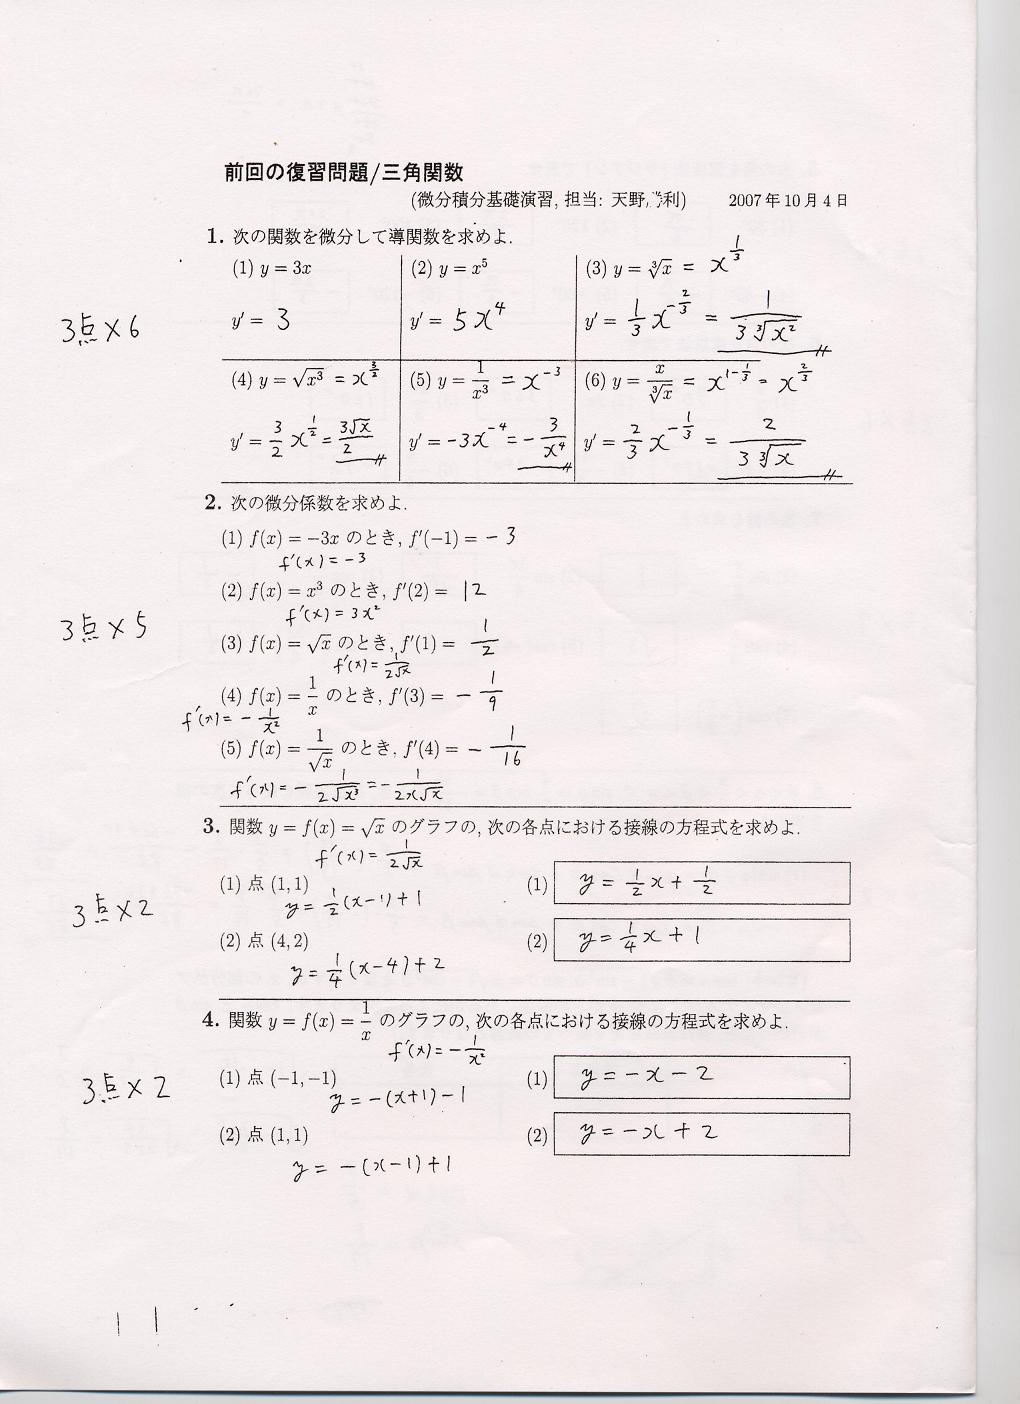 前回の復習問題/三角関数
(微分積分基礎演習, 担当: 天野 利) 2007年10月4日
1. 次の関数を微分して導関数を求めよ.
(1) y = 3x (2) y = x⁵ (3) y = ∛x = x^{1/3}
3点×6
y' = 3 y' = 5x⁴ y' = 1/3 x^{-2/3} = 1/(3∛x²)
(4) y = √x³ = x^{3/2} (5) y = 1/x³ = x^{-3} (6) y = x/∛x = x^{1-1/3} = x^{2/3}
y' = 3/2 x^{1/2} = 3√x/2 y' = -3x^{-4} = -3/x⁴ y' = 2/3 x^{-1/3} = 2/(3∛x)
2. 次の微分係数を求めよ.
(1) f(x) = −3x のとき, f'(−1) = −3
f'(x) = −3
(2) f(x) = x³ のとき, f'(2) = 12
f'(x) = 3x²
3点×5
(3) f(x) = √x のとき, f'(1) = 1/2
f'(x) = 1/(2√x)
(4) f(x) = 1/x のとき, f'(3) = −1/9
f'(x) = −1/x²
(5) f(x) = 1/√x のとき, f'(4) = −1/16
f'(x) = −1/(2√x³) = −1/(2x√x)
3. 関数 y = f(x) = √x のグラフの, 次の各点における接線の方程式を求めよ.
f'(x) = 1/(2√x)
(1) 点 (1,1) (1) y = 1/2 x + 1/2
y = 1/2 (x−1) + 1
3点×2
(2) 点 (4,2) (2) y = 1/4 x + 1
y = 1/4 (x−4) + 2
4. 関数 y = f(x) = 1/x のグラフの, 次の各点における接線の方程式を求めよ.
f'(x) = −1/x²
(1) 点 (−1,−1) (1) y = −x − 2
3点×2
y = −(x+1) − 1
(2) 点 (1,1) (2) y = −x + 2
y = −(x−1) + 1